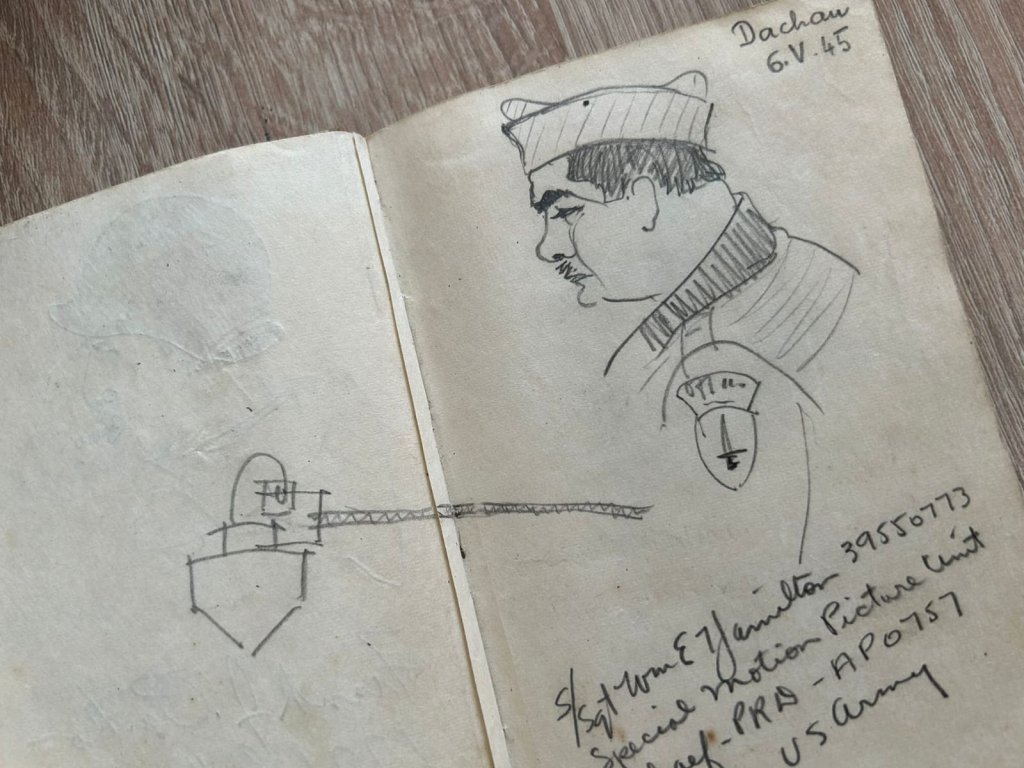 Dachau
6.V.45
S/Sgt Wm E Hamilton 39550773
Special Motion Picture Unit
PRD - APO 757
US Army